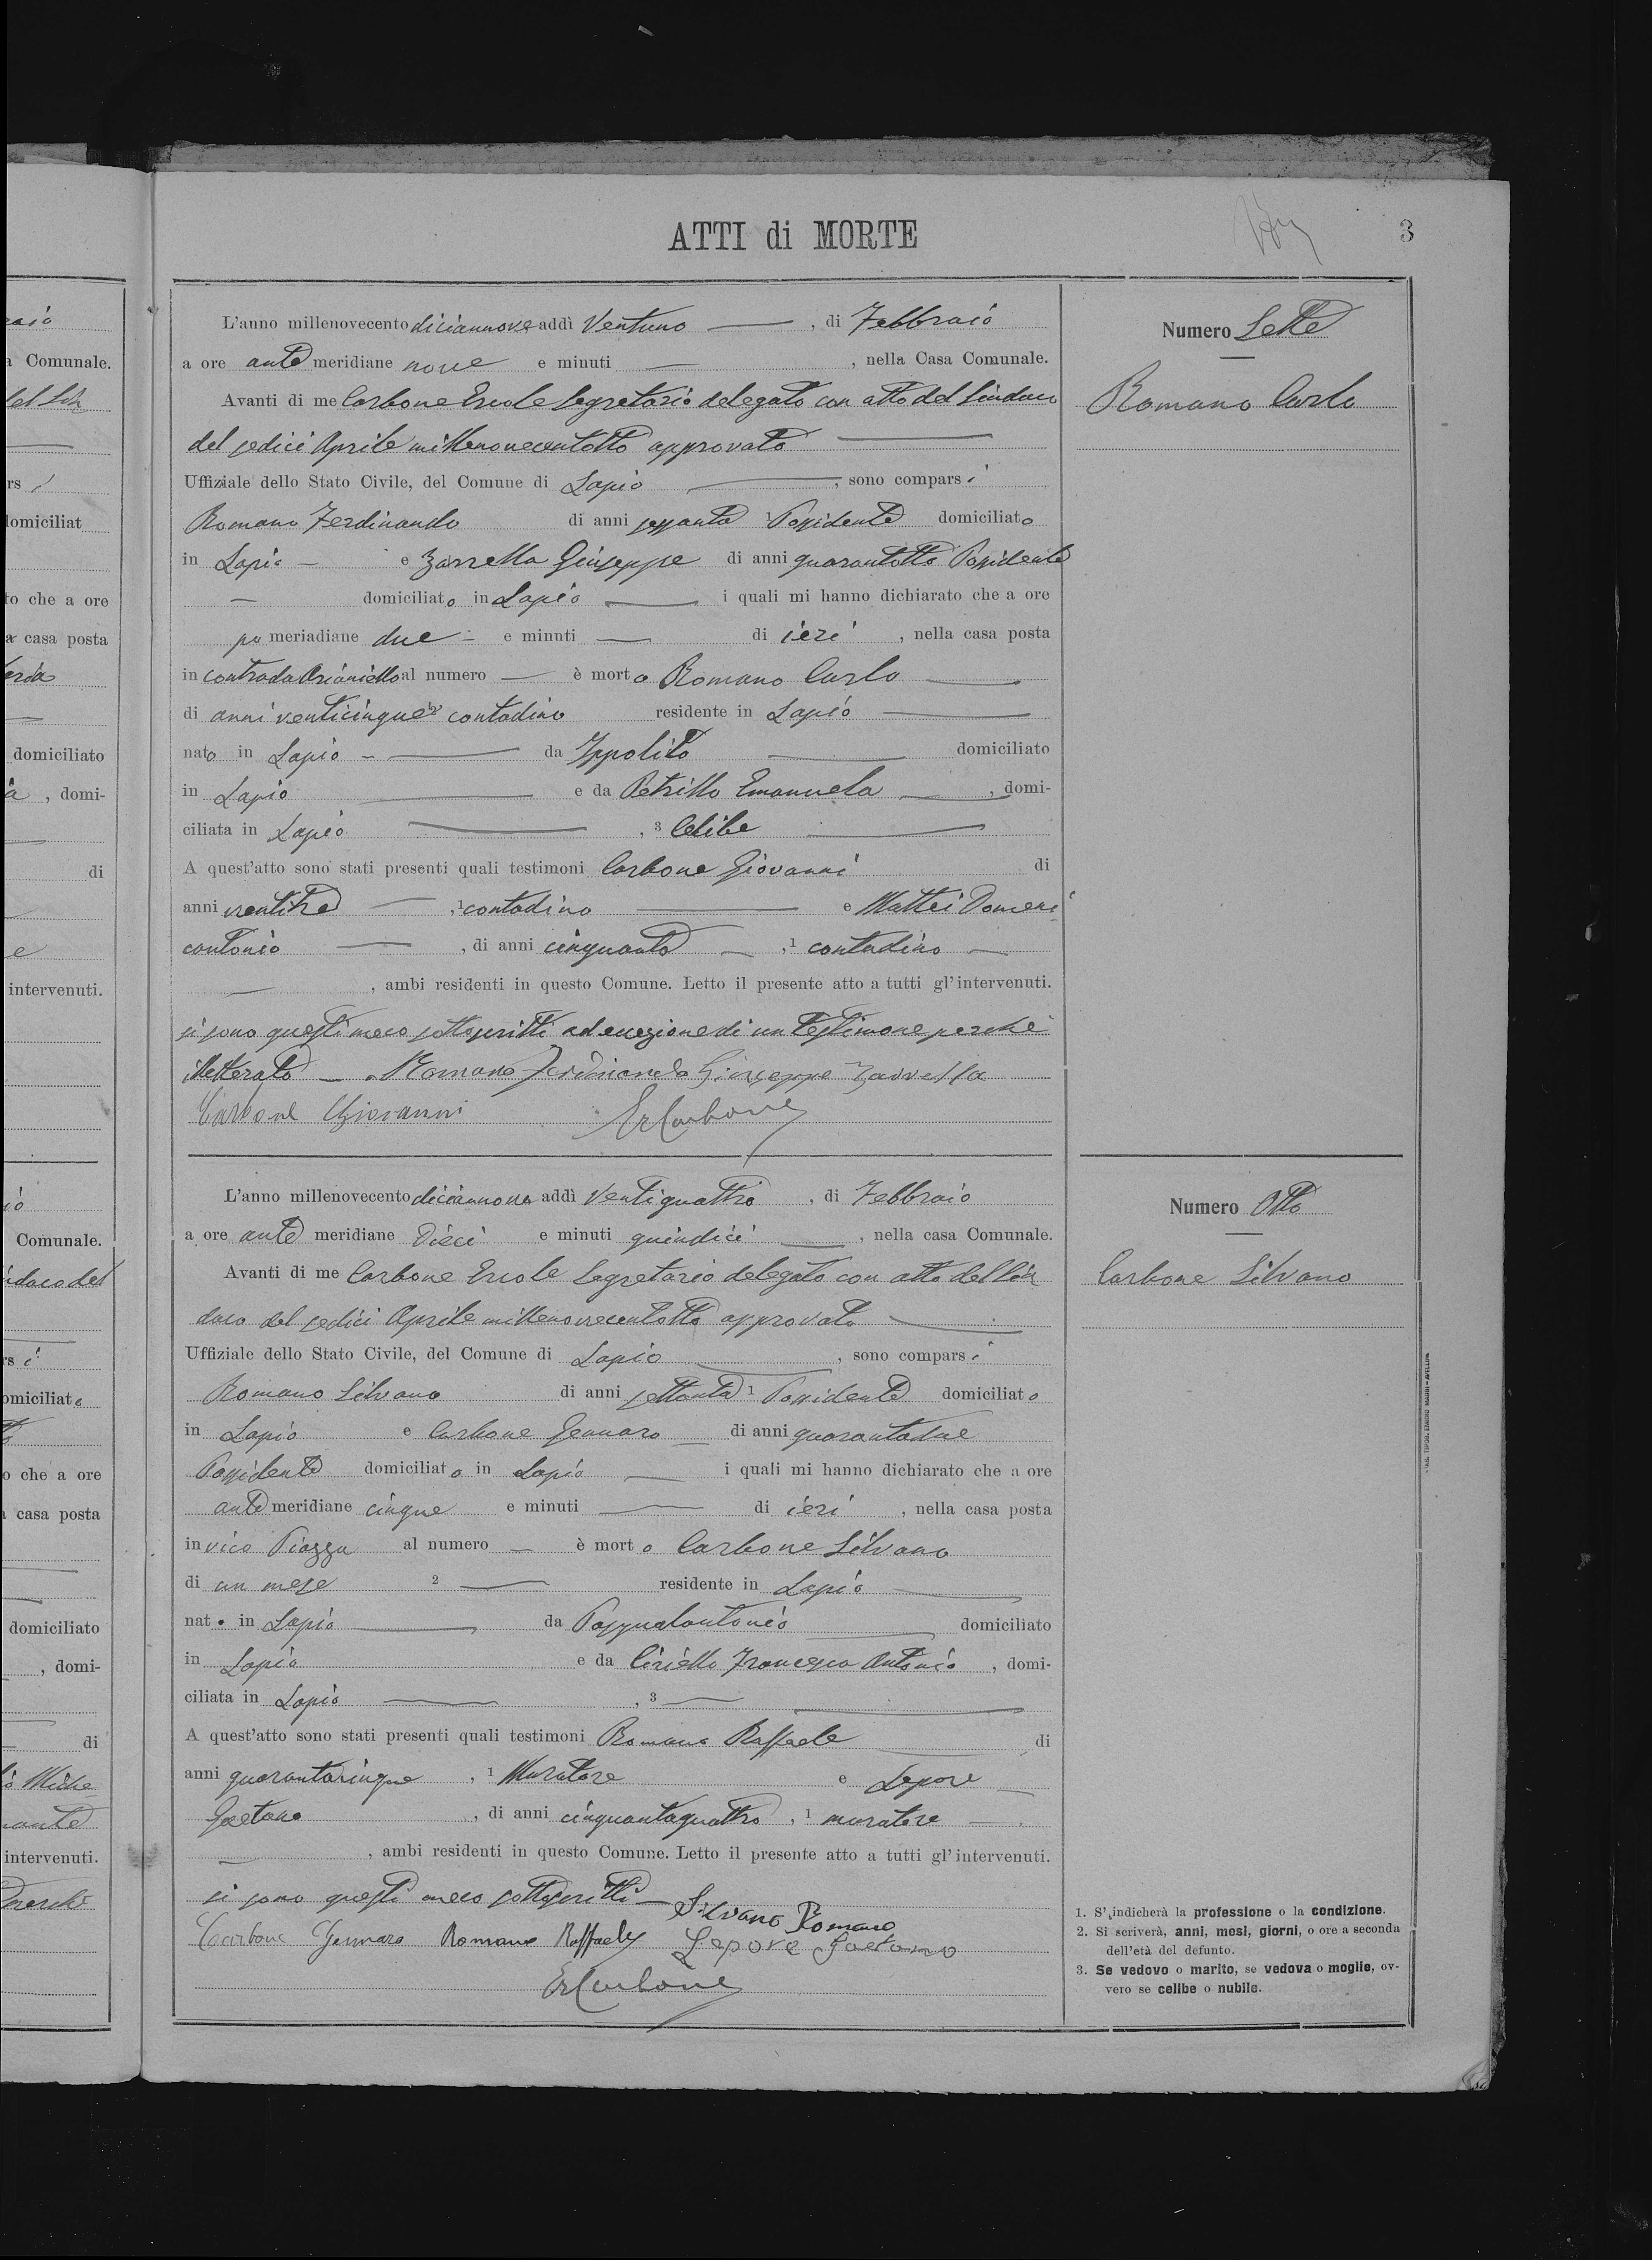 ATTI di MORTE
3
raio
a Comunale.
rs i
domiciliat
to che a ore
casa posta
domiciliato
, domi-
di
e
intervenuti.
Comunale.
daco del
rs i
omiciliato
o che a ore
casa posta
domiciliato
, domi-
di
Miche
intervenuti.
L'anno millenovecento diciannove addì Ventuno — , di Febbraio
a ore ante meridiane nove e minuti — , nella Casa Comunale.
Avanti di me Carbone Ercole Segretario delegato con atto del Sindaco
del sedici Aprile millenovecentotto approvato —
Uffiziale dello Stato Civile, del Comune di Lapio — , sono comparsi
Romano Ferdinando di anni sessanta 1 Possidente domiciliato
in Lapio — e Zarrella Giuseppe di anni quarantotto Possidente
— domiciliato in Lapio — i quali mi hanno dichiarato che a ore
po meriadiane due — e minuti — di ieri , nella casa posta
in contrada Arianiello al numero — è morto Romano Carlo —
di anni venticinque 2 contadino residente in Lapio —
nato in Lapio — da Ippolito — domiciliato
in Lapio — e da Petrillo Emanuela — , domi-
ciliata in Lapio — , 3 Celibe —
A quest'atto sono stati presenti quali testimoni Carbone Giovanni di
anni ventitre — , 1 contadino — e Mattei Domeni
cantonio — , di anni cinquanta — , 1 contadino —
— , ambi residenti in questo Comune. Letto il presente atto a tutti gl'intervenuti.
si sono questi meco sottoscritti ad eccezione di un testimone perchè
illetterato — Romano Ferdinando Giuseppe Zarrella
Carbone Giovanni ErCarbone
Numero Sette
Romano Carlo
L'anno millenovecento diciannove addì Ventiquattro , di Febbraio
a ore ante meridiane Dieci e minuti quindici — , nella casa Comunale.
Avanti di me Carbone Ercole Segretario delegato con atto del Sin
daco del sedici Aprile millenovecentotto approvato —
Uffiziale dello Stato Civile, del Comune di Lapio — , sono comparsi
Romano Silvano di anni settanta 1 Possidente domiciliato
in Lapio e Carbone Gennaro — di anni quarantadue
Possidente domiciliato in Lapio — i quali mi hanno dichiarato che a ore
ante meridiane cinque e minuti — di ieri , nella casa posta
in vico Piazza al numero — è morto Carbone Silvano
di un mese 2 — residente in Lapio —
nato in Lapio — da Pasqualantonio — domiciliato
in Lapio e da Ciriello Francesca Antonia , domi-
ciliata in Lapio — , 3 —
A quest'atto sono stati presenti quali testimoni Romano Raffaele — di
anni quarantacinque , 1 Muratore e Lepore —
Gaetano , di anni cinquantaquattro , 1 muratore — .
— , ambi residenti in questo Comune. Letto il presente atto a tutti gl'intervenuti.
si sono questi meco sottoscritti — Silvano Romano
Carbone Gennaro Romano Raffaele Lepore Gaetano
ErCarbone
Numero Otto
Carbone Silvano
1. S'indicherà la professione o la condizione.
2. Si scriverà, anni, mesi, giorni, o ore a seconda
dell'età del defunto.
3. Se vedovo o marito, se vedova o moglie, ov-
vero se celibe o nubile.